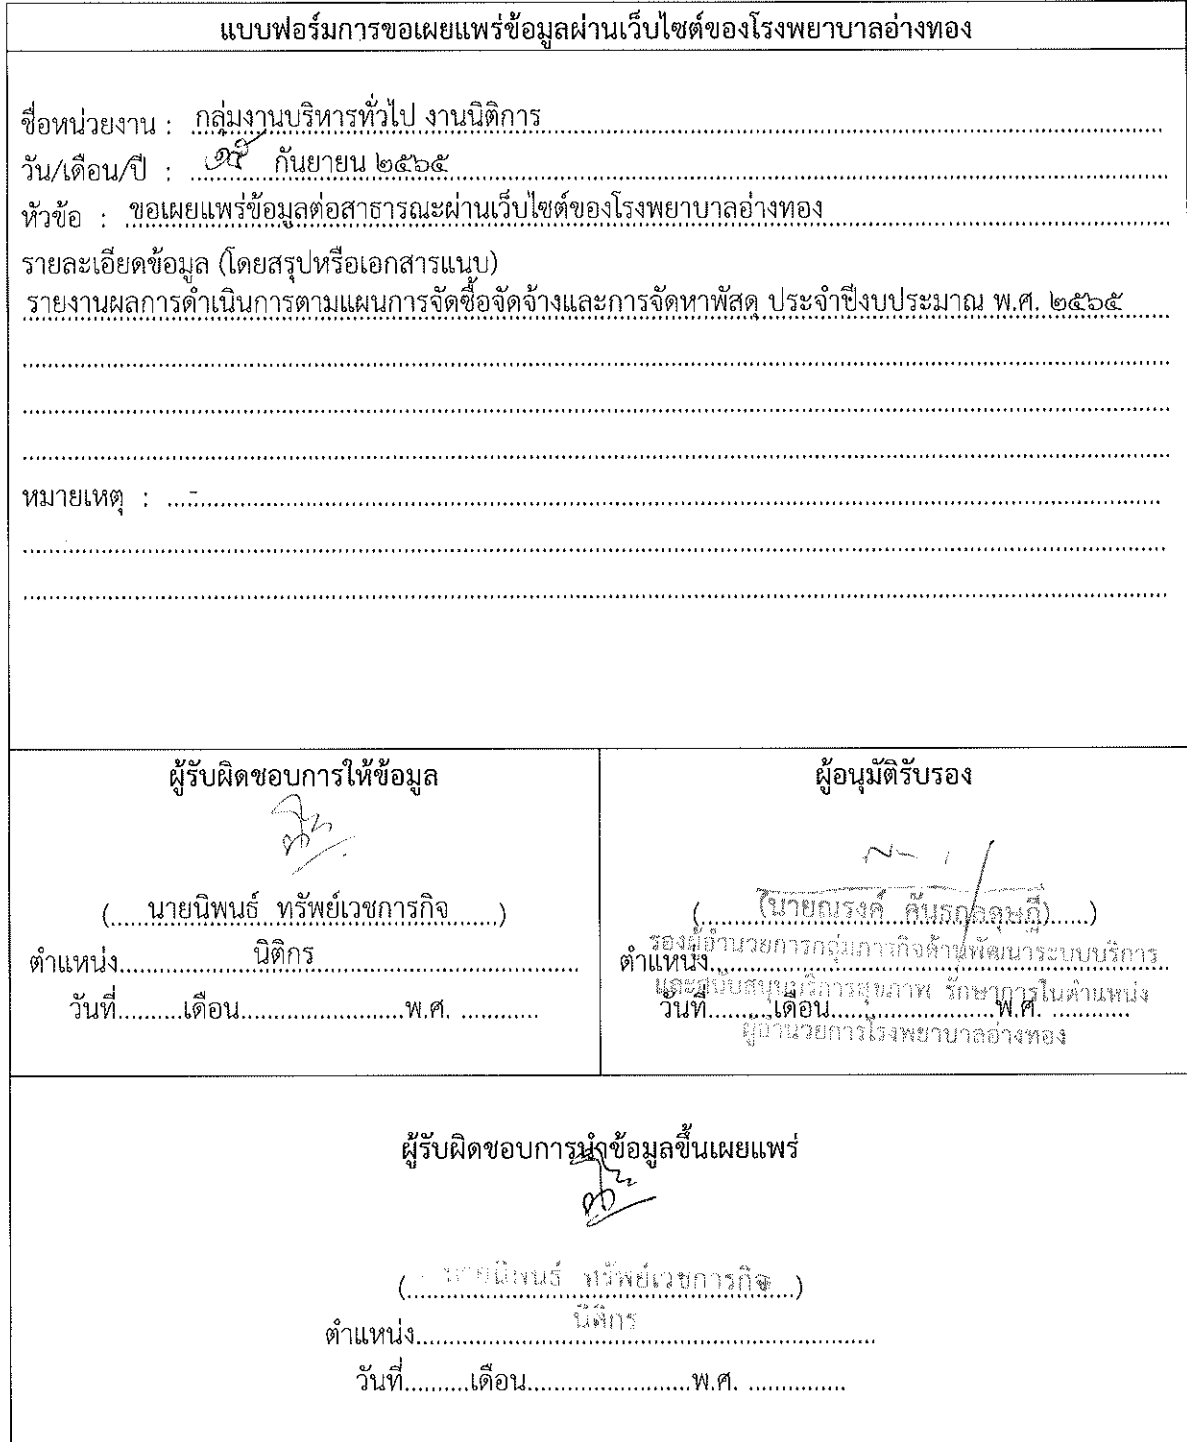 แบบฟอร์มการขอเผยแพร่ข้อมูลผ่านเว็บไซต์ของโรงพยาบาลอ่างทอง
ชื่อหน่วยงาน : กลุ่มงานบริหารทั่วไป งานนิติการ
วัน/เดือน/ปี : ๑๕ กันยายน ๒๕๖๕
หัวข้อ : ขอเผยแพร่ข้อมูลต่อสาธารณะผ่านเว็บไซต์ของโรงพยาบาลอ่างทอง
รายละเอียดข้อมูล (โดยสรุปหรือเอกสารแนบ)
รายงานผลการดำเนินการตามแผนการจัดซื้อจัดจ้างและการจัดหาพัสดุ ประจำปีงบประมาณ พ.ศ. ๒๕๖๕
หมายเหตุ : ...-...
ผู้รับผิดชอบการให้ข้อมูล
(.....นายนิพนธ์ ทรัพย์เวชการกิจ.....)
ตำแหน่ง...นิติกร...
วันที่..........เดือน........................พ.ศ. ............
ผู้อนุมัติรับรอง
(นายณรงค์)
ตำแหน่ง รองผู้อำนวยการกลุ่มภารกิจด้านพัฒนาระบบบริการ
และสนับสนุนบริการสุขภาพ รักษาการในตำแหน่ง
วันที่..........เดือน........................พ.ศ. ............
ผู้อำนวยการโรงพยาบาลอ่างทอง
ผู้รับผิดชอบการนำข้อมูลขึ้นเผยแพร่
(นายนิพนธ์ ทรัพย์เวชการกิจ)
ตำแหน่ง...นิติกร...
วันที่..........เดือน........................พ.ศ. ...............